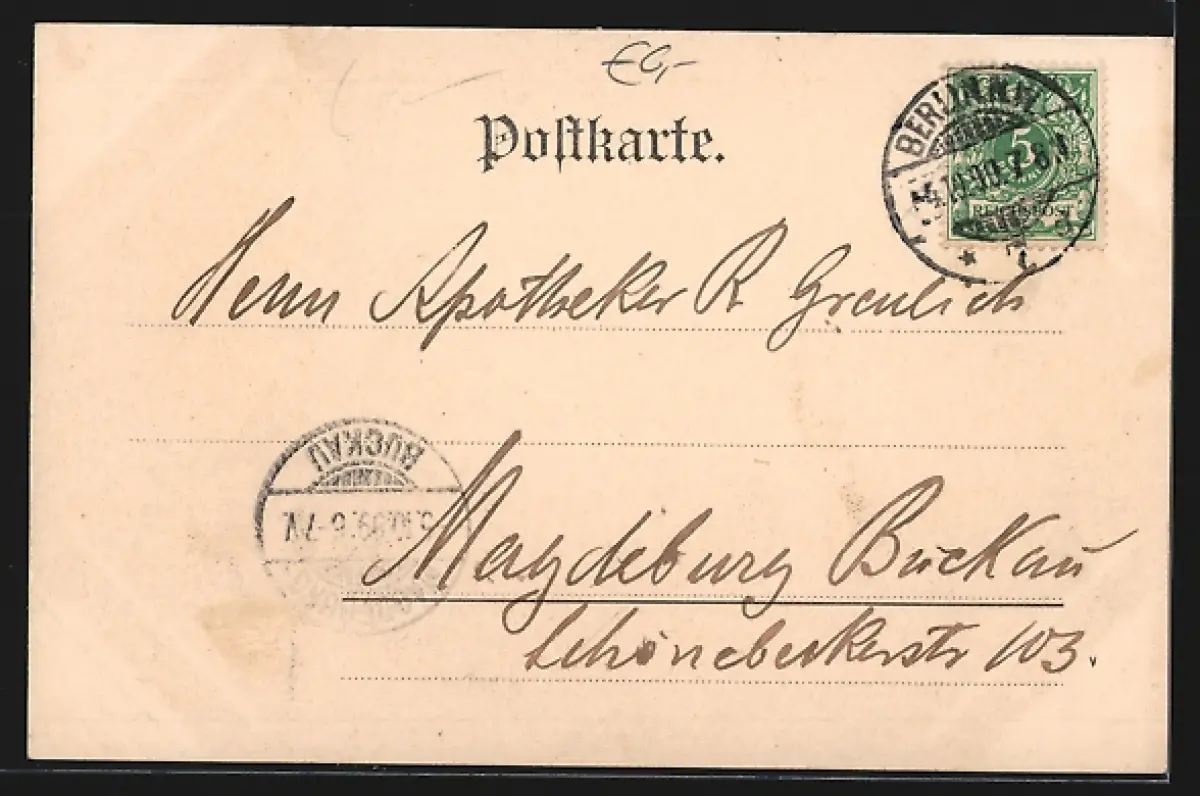 €6,-
Postkarte.
BERLIN N.W.
5
REICHSPOST
Herrn Apotheker R Greulich
BUCKAU
6-7N.
Magdeburg Buckau
Schönebeckerstr 103.